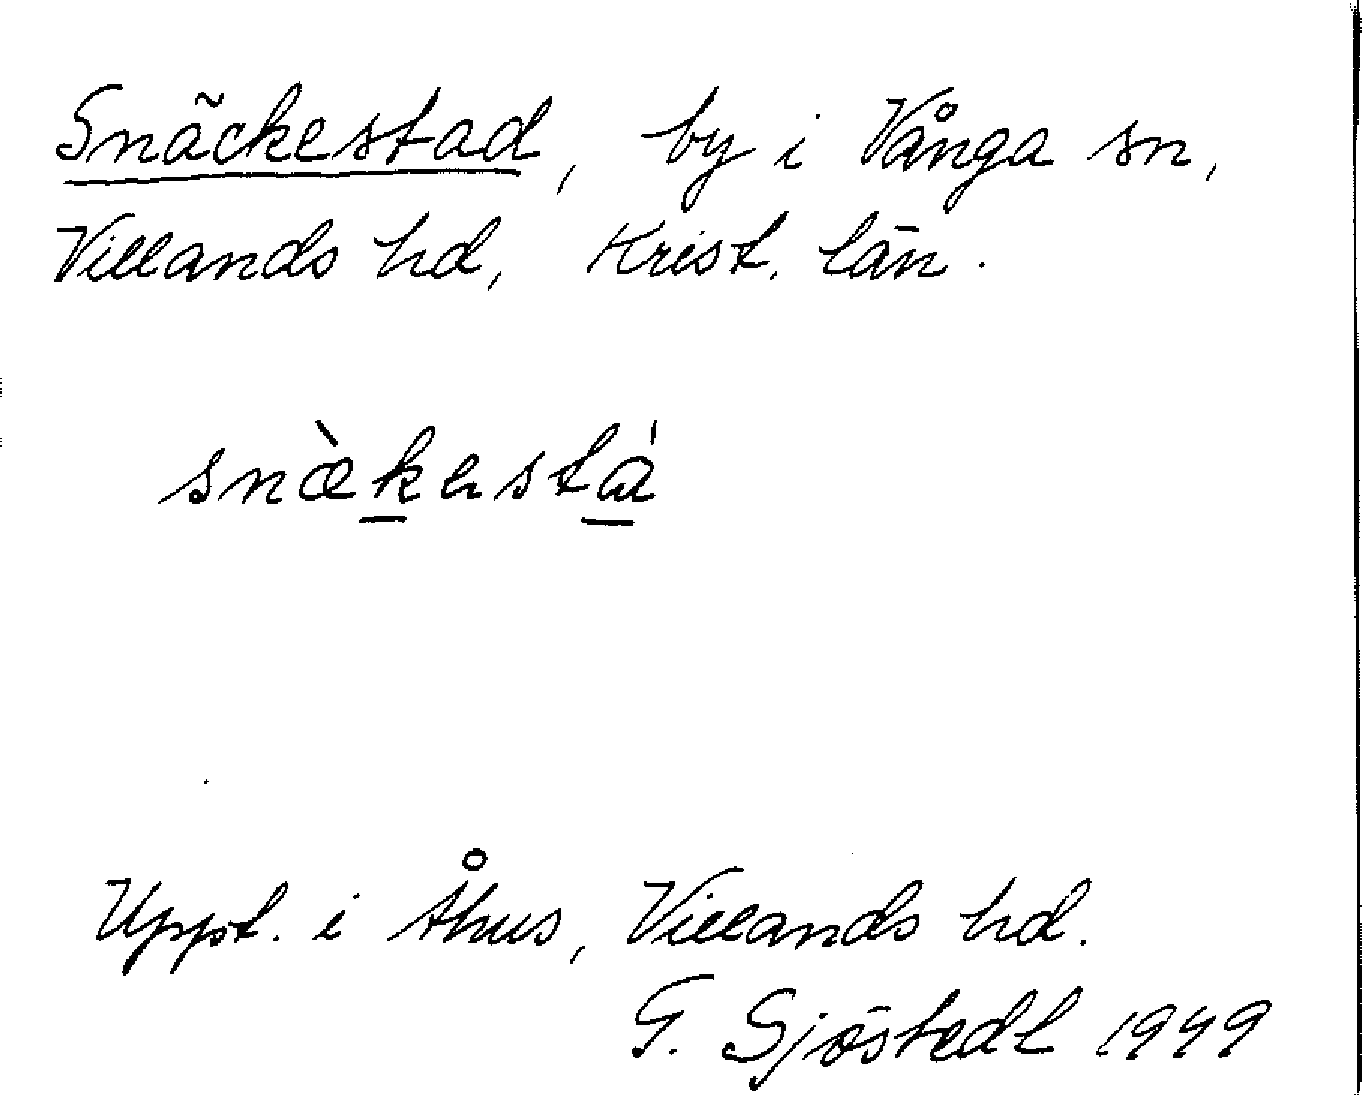 Snäckestad, by i Vånga sn,
Villands hd, Krist. län.
snæ̀kestá
Uppt. i Åhus, Villands hd.
G. Sjöstedt 1949